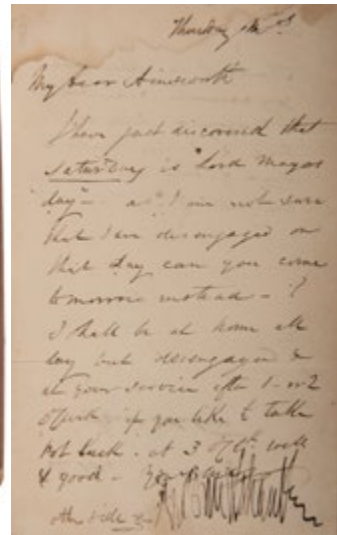 Thursday
My dear Ainsworth
I have just discovered that
Saturday is "Lord Mayors
day" - as I am not sure
that I am disengaged on
that day can you come
tomorrow instead - ?
I shall be at home all
day but disengaged &
at your service after 1 - or 2
o'clock if you like to take
Pot luck - at 3 o'ck well
& good - Yours
Geo Cruikshank
other side